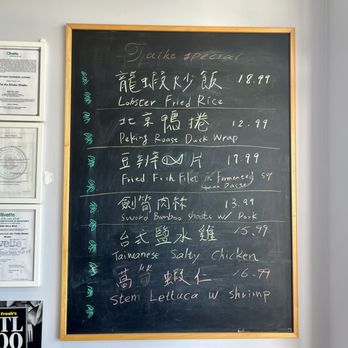 Taike special
龍蝦炒飯 18.99
Lobster Fried Rice
北京鴨捲 12.99
Peking Roast Duck Wrap
豆瓣魚片 17.99
Fried Fish Filet in Fermented soy
劍筍肉絲 13.99
Sword Bamboo Shoots w/ Pork
台式鹽水雞 15.99
Taiwanese Salty Chicken
萵筍蝦仁 16.99
Stem Lettuce w shrimp